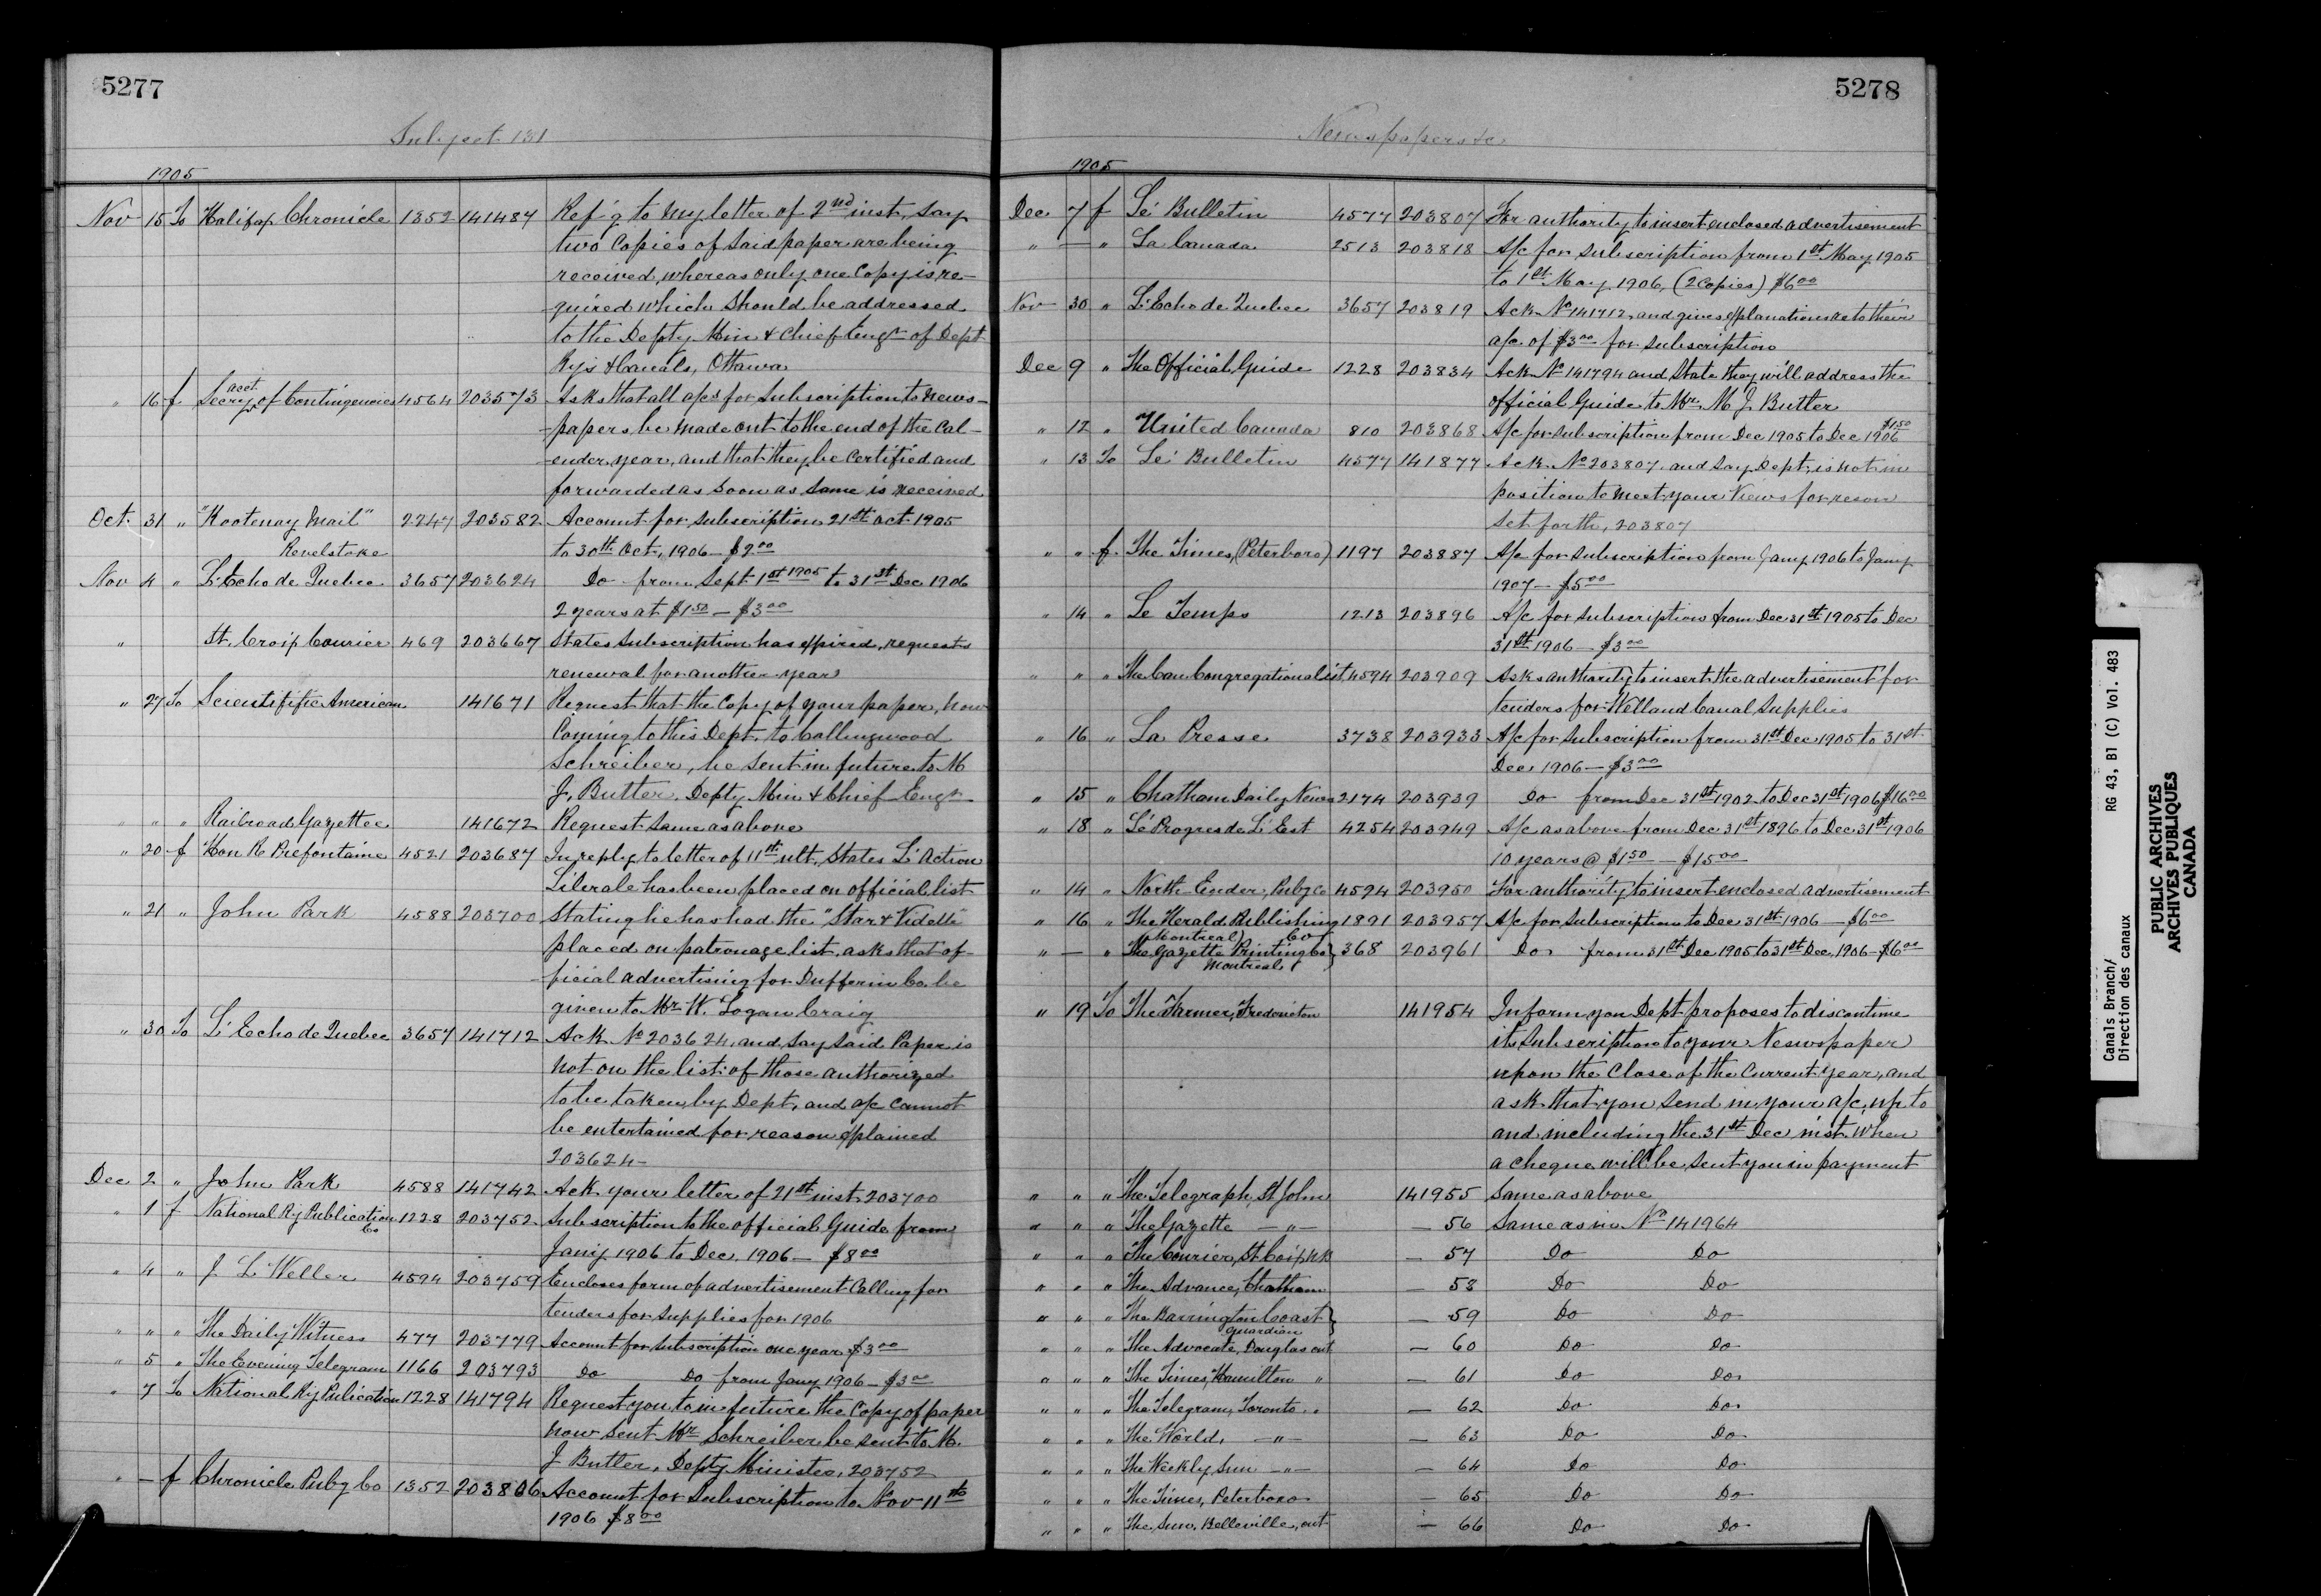 5277
Subject 131
1905
Nov 15 To Halifax Chronicle 1352 141487 Ref'g to my letter of 2nd inst, say
two Copies of said paper are being
received, whereas only one Copy is re-
quired which should be addressed
to the Depty Min & Chief Engr of Dept
Rys & Canals, Ottawa
" 16 f Secrey acct. of Contingencies 4564 203573 Asks that all a/cs for Subscription to News-
-papers be made out to the end of the Cal-
-ender year, and that they be Certified and
forwarded as soon as same is received
Oct. 31 " "Kootenay Mail" 2247 203582 Account for Subscription 21st Oct 1905
Revelstoke to 30th Oct, 1906 - $2.00
Nov 4 " L'Echo de Quebec 3657 203624 Do from Sept 1st 1905 to 31st Dec 1906
2 years at $1.50 - $3.00
" St. Croix Courier 469 203667 States Subscription has expired, requests
renewal for another year
" 27 To Scientifific American 141671 Request that the Copy of your paper, now
Coming to this Dept. to Collingwood
Schreiber, be sent in future to M
J. Butler. Depty Min & Chief Engr
" " " Railroad Gazettee 141672 Request same as above
" 20 f Hon R Prefontaine 4521 203687 In reply to letter of 11st ult. States L'Action
Liberale has been placed on official list
" 21 " John Park 4588 203700 Stating he has had the "Star & Vidette"
placed on patronage list, asks that of-
ficial advertising for Dufferin Co. be
given to Mr W. Logan Craig
" 30 To L'Echo de Quebec 3657 141712 Ack No 203624, and say said Paper is
not on the list of those authorized
to be taken by Dept, and a/c cannot
be entertained for reason explained
203624-
Dec 2 " John Park 4588 141742 Ack your letter of 21st inst 203700
" 1 f National Ry Publication Co 1228 203752 Subscription to the official Guide from
Jany 1906 to Dec. 1906 - $8.00
" 4 " J L Weller 4594 203759 Encloses form of advertisement Calling for
tenders for Supplies for 1906
" " " The Daily Witness 477 203779 Account for Subscription one year $3.00
" 5 " The Evening Telegram 1166 203793 Do Do from Jany 1906 - $3.00
" 7 To National Ry Publication 1228 141794 Request you to in future the Copy of paper
now sent Mr Schreiber be sent to M.
J Butler, Depty Minister, 203752
" — f Chronicle Pubg Co 1352 203806 Account for Subscription to Nov 11th
1906 $8.00
5278
Newspapers &c
1905
Dec 7 f Le Bulletin 4577 203807 For authority to insert enclosed advertisement
" — " La Canada 2513 203818 A/c for Subscription from 1st May 1905
to 1st May 1906, (2 Copies) $6.00
Nov 30 " L'Echo de Quebec 3657 203819 Ack No 141712, and gives explanations as to their
a/c of $3.00 for subscription
Dec 9 " The Official Guide 1228 203834 Ack No 141794 and State they will address the
official Guide to Mr. M J Butler
" 12 " United Canada 810 203868 A/c for Subscription from Dec 1905 to Dec 1906 $1.50
" 13 To Le Bulletin 4577 141877 Ack No 203807 and say Dept. is not in
position to meet your Views for reson
set forth, 203807
" " f The Times, (Peterboro) 1197 203887 A/c for Subscription from Jany 1906 to Jany
1907 - $5.00
" 14 " Le Temps 1213 203896 A/c for Subscription from Dec 31st 1905 to Dec
31st 1906 - $3.00
" " " The Can Congregationalist 4594 203909 Asks authority to insert the advertisement for
tenders for Welland Canal Supplies
" 16 " La Presse 3738 203933 A/c for Subscription from 31st Dec 1905 to 31st
Dec 1906 - $3.00
" 15 " Chatham Daily News 2174 203939 Do from Dec 31st 1902 to Dec 31st 1906 $16.00
" 18 " Le Progres de L'Est 4254 203949 A/c as above from Dec 31st 1896 to Dec 31st 1906
10 years @ $1.50 - $15.00
" 14 " North Ender, Pubg Co 4594 203950 For authority to insert enclosed advertisement
" 16 " The Herald Publishing 1891 203957 A/c for Subscription to Dec 31st 1906 - $6.00
(Montreal) Co
" — " The Gazette Printing Co 368 203961 Do from 31st Dec 1905 to 31st Dec. 1906 - $6.00
Montreal
" 19 To The Farmer, Fredericton 141954 Inform you Dept proposes to discontinue
its Subscription to your Newspaper
upon the Close of the Current year, and
ask that you send in your a/c, up to
and including the 31st Dec inst. when
a cheque will be sent you in payment
" " " The Telegraph, St John 141955 Same as above
" " " The Gazette — " — — 56 Same as in No 141964
" " " The Courier, St. Croix, N.B — 57 Do Do
" " " The Advance, Chatham — 58 Do Do
" " " The Barrington Coast Guardian — 59 Do Do
" " " The Advocate, Douglas ont — 60 Do Do
" " " The Times, Hamilton " — 61 Do Do
" " " The Telegram, Toronto " — 62 Do Do
" " " The World, — " — — 63 Do Do
" " " The Weekly Sun — " — — 64 Do Do
" " " The Times, Peterboro — 65 Do Do
" " " The Sun, Belleville, ont — 66 Do Do
Canals Branch/ RG 43, B1 (C) Vol. 483
Direction des canaux
PUBLIC ARCHIVES
ARCHIVES PUBLIQUES
CANADA